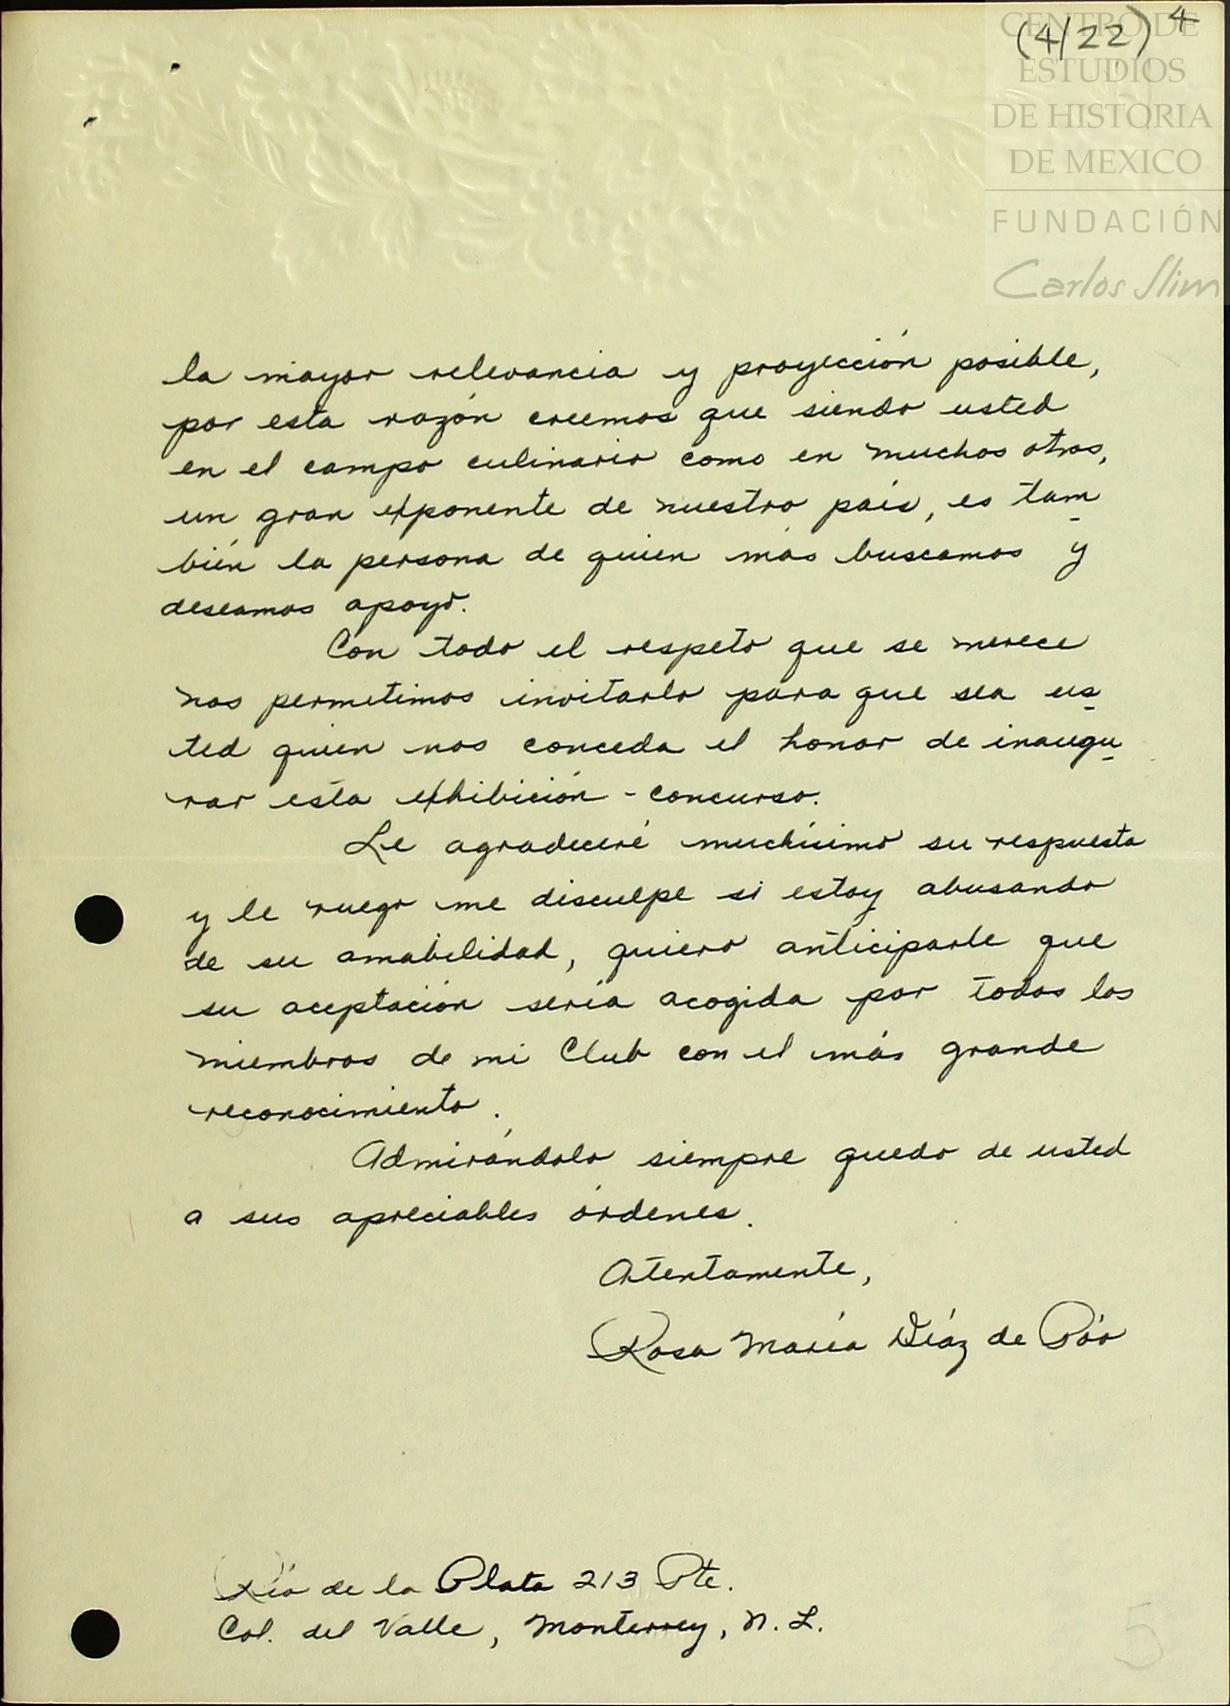 (4/22) 4
CENTRO DE
ESTUDIOS
DE HISTORIA
DE MEXICO
FUNDACIÓN
Carlos Slim
la mayor relevancia y proyección posible,
por esta razón creemos que siendo usted
en el campo culinario como en muchos otros,
un gran exponente de nuestro país, es tam
bién la persona de quien más buscamos y
deseamos apoyo.
Con todo el respeto que se merece
nos permitimos invitarlo para que sea us
ted quien nos conceda el honor de inaugu
rar esta exhibición - concurso.
Le agradeceré muchísimo su respuesta
y le ruego me disculpe si estoy abusando
de su amabilidad, quiero anticiparle que
su aceptación sería acogida por todos los
miembros de mi Club con el más grande
reconocimiento.
Admirándolo siempre quedo de usted
a sus apreciables órdenes.
Atentamente,
Rosa María Díaz de Páo
Río de la Plata 213 Pte.
Col. del Valle, Monterrey, N. L.
5